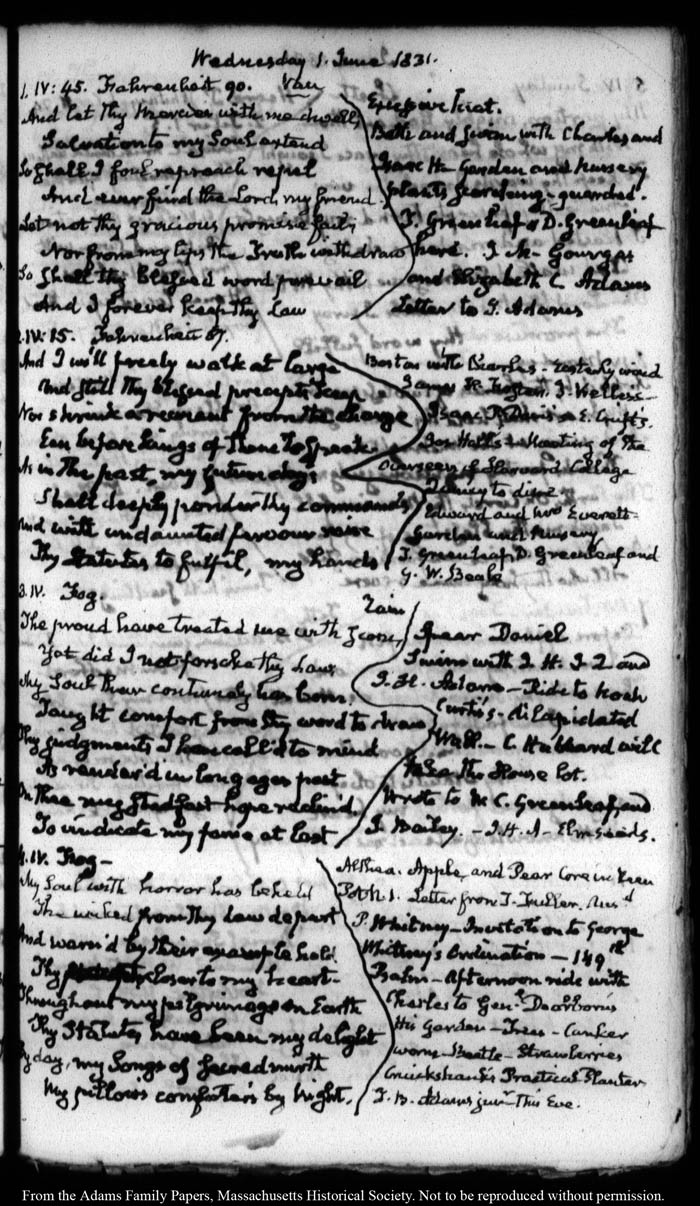 Wednesday 1. June 1831.
1. IV: 45. Fahrenheit 90. Vau
And let thy mercies with me dwell,
Salvation to my Soul extend
So shall I foul reproach repel
And ever find the Lord my friend.
Let not thy gracious promise fail;
Nor from my lips the Truth withdraw
So shall thy blessed word prevail
And I forever keep thy Law
Excessive heat.
Bathe and swim with Charles and
Isaac H. Garden and Nursery
plants guarded.
T. Greenleaf D. Greenleaf
here. J M. Gourgas
and Elizabeth C Adams
Letter to J. Adams
2. IV: 15. Fahrenheit 87.
And I will freely walk at large
And still thy blessed precepts keep
Nor shrink a recreant from the charge
Even before kings of thine to speak.
As in the past, my future days
Shall deeply ponder thy commands
And with undaunted fervour raise
Thy Statutes to fulfil, my hands
Boston with Charles - Easterly wind
James H. Foster. J. Welles
Isaac P. Davis E. Crufts.
Meeting of the
Overseers of Harvard College
Quincy to dine
Edward and Mrs Everett
Garden and Nursery
T. Greenleaf, D. Greenleaf and
G. W. Beale
3. IV. Fog.
Zain
The proud have treated me with scorn,
Yet did I not forsake thy Law
My Soul their contumely has borne,
Taught comfort from thy word to draw
Thy judgments I have call'd to mind
As render'd in long ages past
On thee my stedfast hope reclin'd.
To vindicate my fame at last
Spear Daniel
Swim with I. H.
J. H. Adams - Ride to Noah
Curtis's - dilapidated
Wall. - C Hubbard will
take the House lot.
Wrote to W. C. Greenleaf, and
J. Bailey. - I. H. A - Elm seeds.
4. IV. Fog -
My Soul with horror has beheld
The wicked from thy Law depart
And warn'd by their example held
Thy closer to my heart.
Throughout my pilgrimage on Earth
Thy Statutes have been my delight
By day, my Songs of sacred mirth
My pillow's comforters by Night.
Althea. Apple, and Pear Core in tree
Pot N. 1. Letter from T. Fuller.
P. Whitney - Invitation to George
Whitney's Ordination - 149th
Psalm - Afternoon ride with
Charles to Genl. Dearborn's
His Garden - Trees - Canker
worm - Beetle - Strawberries
Cruickshank's Practical Planter
T. B. Adams junr. This Eve.
From the Adams Family Papers, Massachusetts Historical Society. Not to be reproduced without permission.